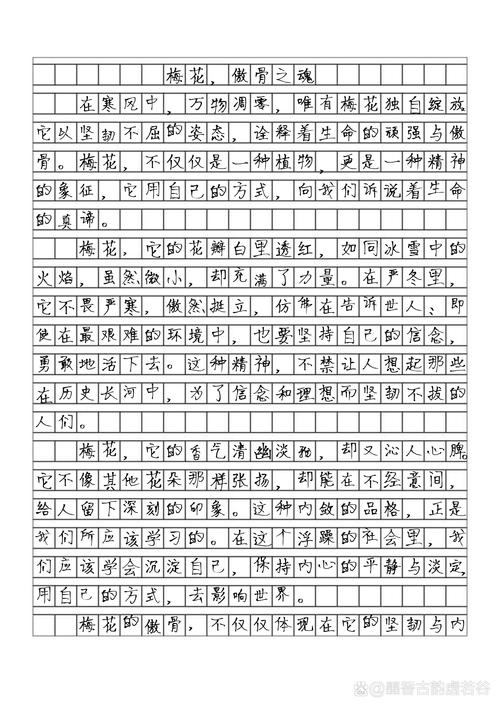 梅花，傲骨之魂
在寒风中，万物凋零，唯有梅花独自绽放
它以坚韧不屈的姿态，诠释着生命的顽强与傲
骨。梅花，不仅仅是一种植物，更是一种精神
的象征，它用自己的方式，向我们诉说着生命
的真谛。
梅花，它的花瓣白里透红，如同冰雪中的
火焰，虽然微小，却充满了力量。在严冬里，
它不畏严寒，傲然挺立，仿佛在告诉世人、即
使在最艰难的环境中，也要坚持自己的信念，
勇敢地活下去。这种精神，不禁让人想起那些
在历史长河中，为了信念和理想而坚韧不拔的
人们。
梅花，它的香气清幽淡雅，却又沁人心脾。
它不像其他花朵那样张扬，却能在不经意间，
给人留下深刻的印象。这种内敛的品格，正是
我们所应该学习的。在这个浮躁的社会里，我
们应该学会沉淀自己，保持内心的平静与淡定，
用自己的方式，去影响世界。
梅花的傲骨，不仅仅体现在它的坚韧与内